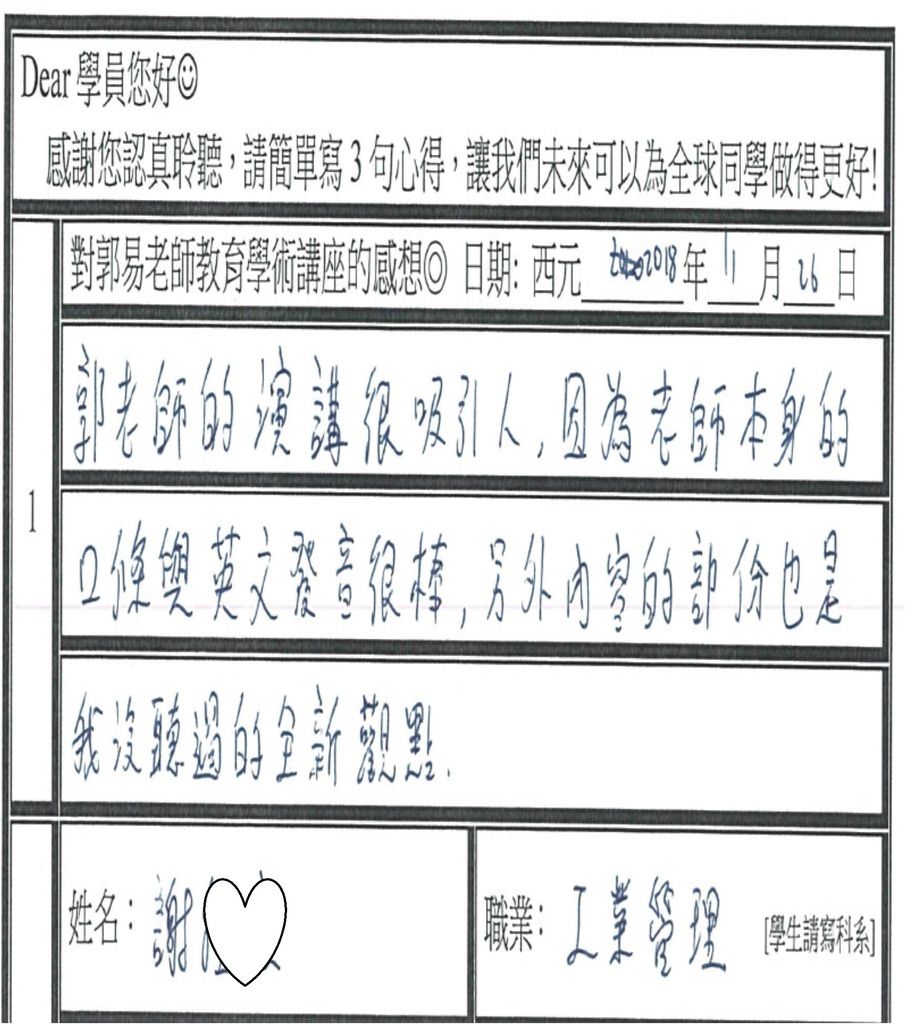 Dear 學員您好☺
感謝您認真聆聽，請簡單寫 3 句心得，讓我們未來可以為全球同學做得更好!
對郭易老師教育學術講座的感想◎ 日期: 西元 2018 年 11 月 26 日
1
郭老師的演講很吸引人,因為老師本身的
口條與英文發音很棒,另外內容的部份也是
我沒聽過的全新觀點.
姓名: 謝
職業: 工業管理 [學生請寫科系]